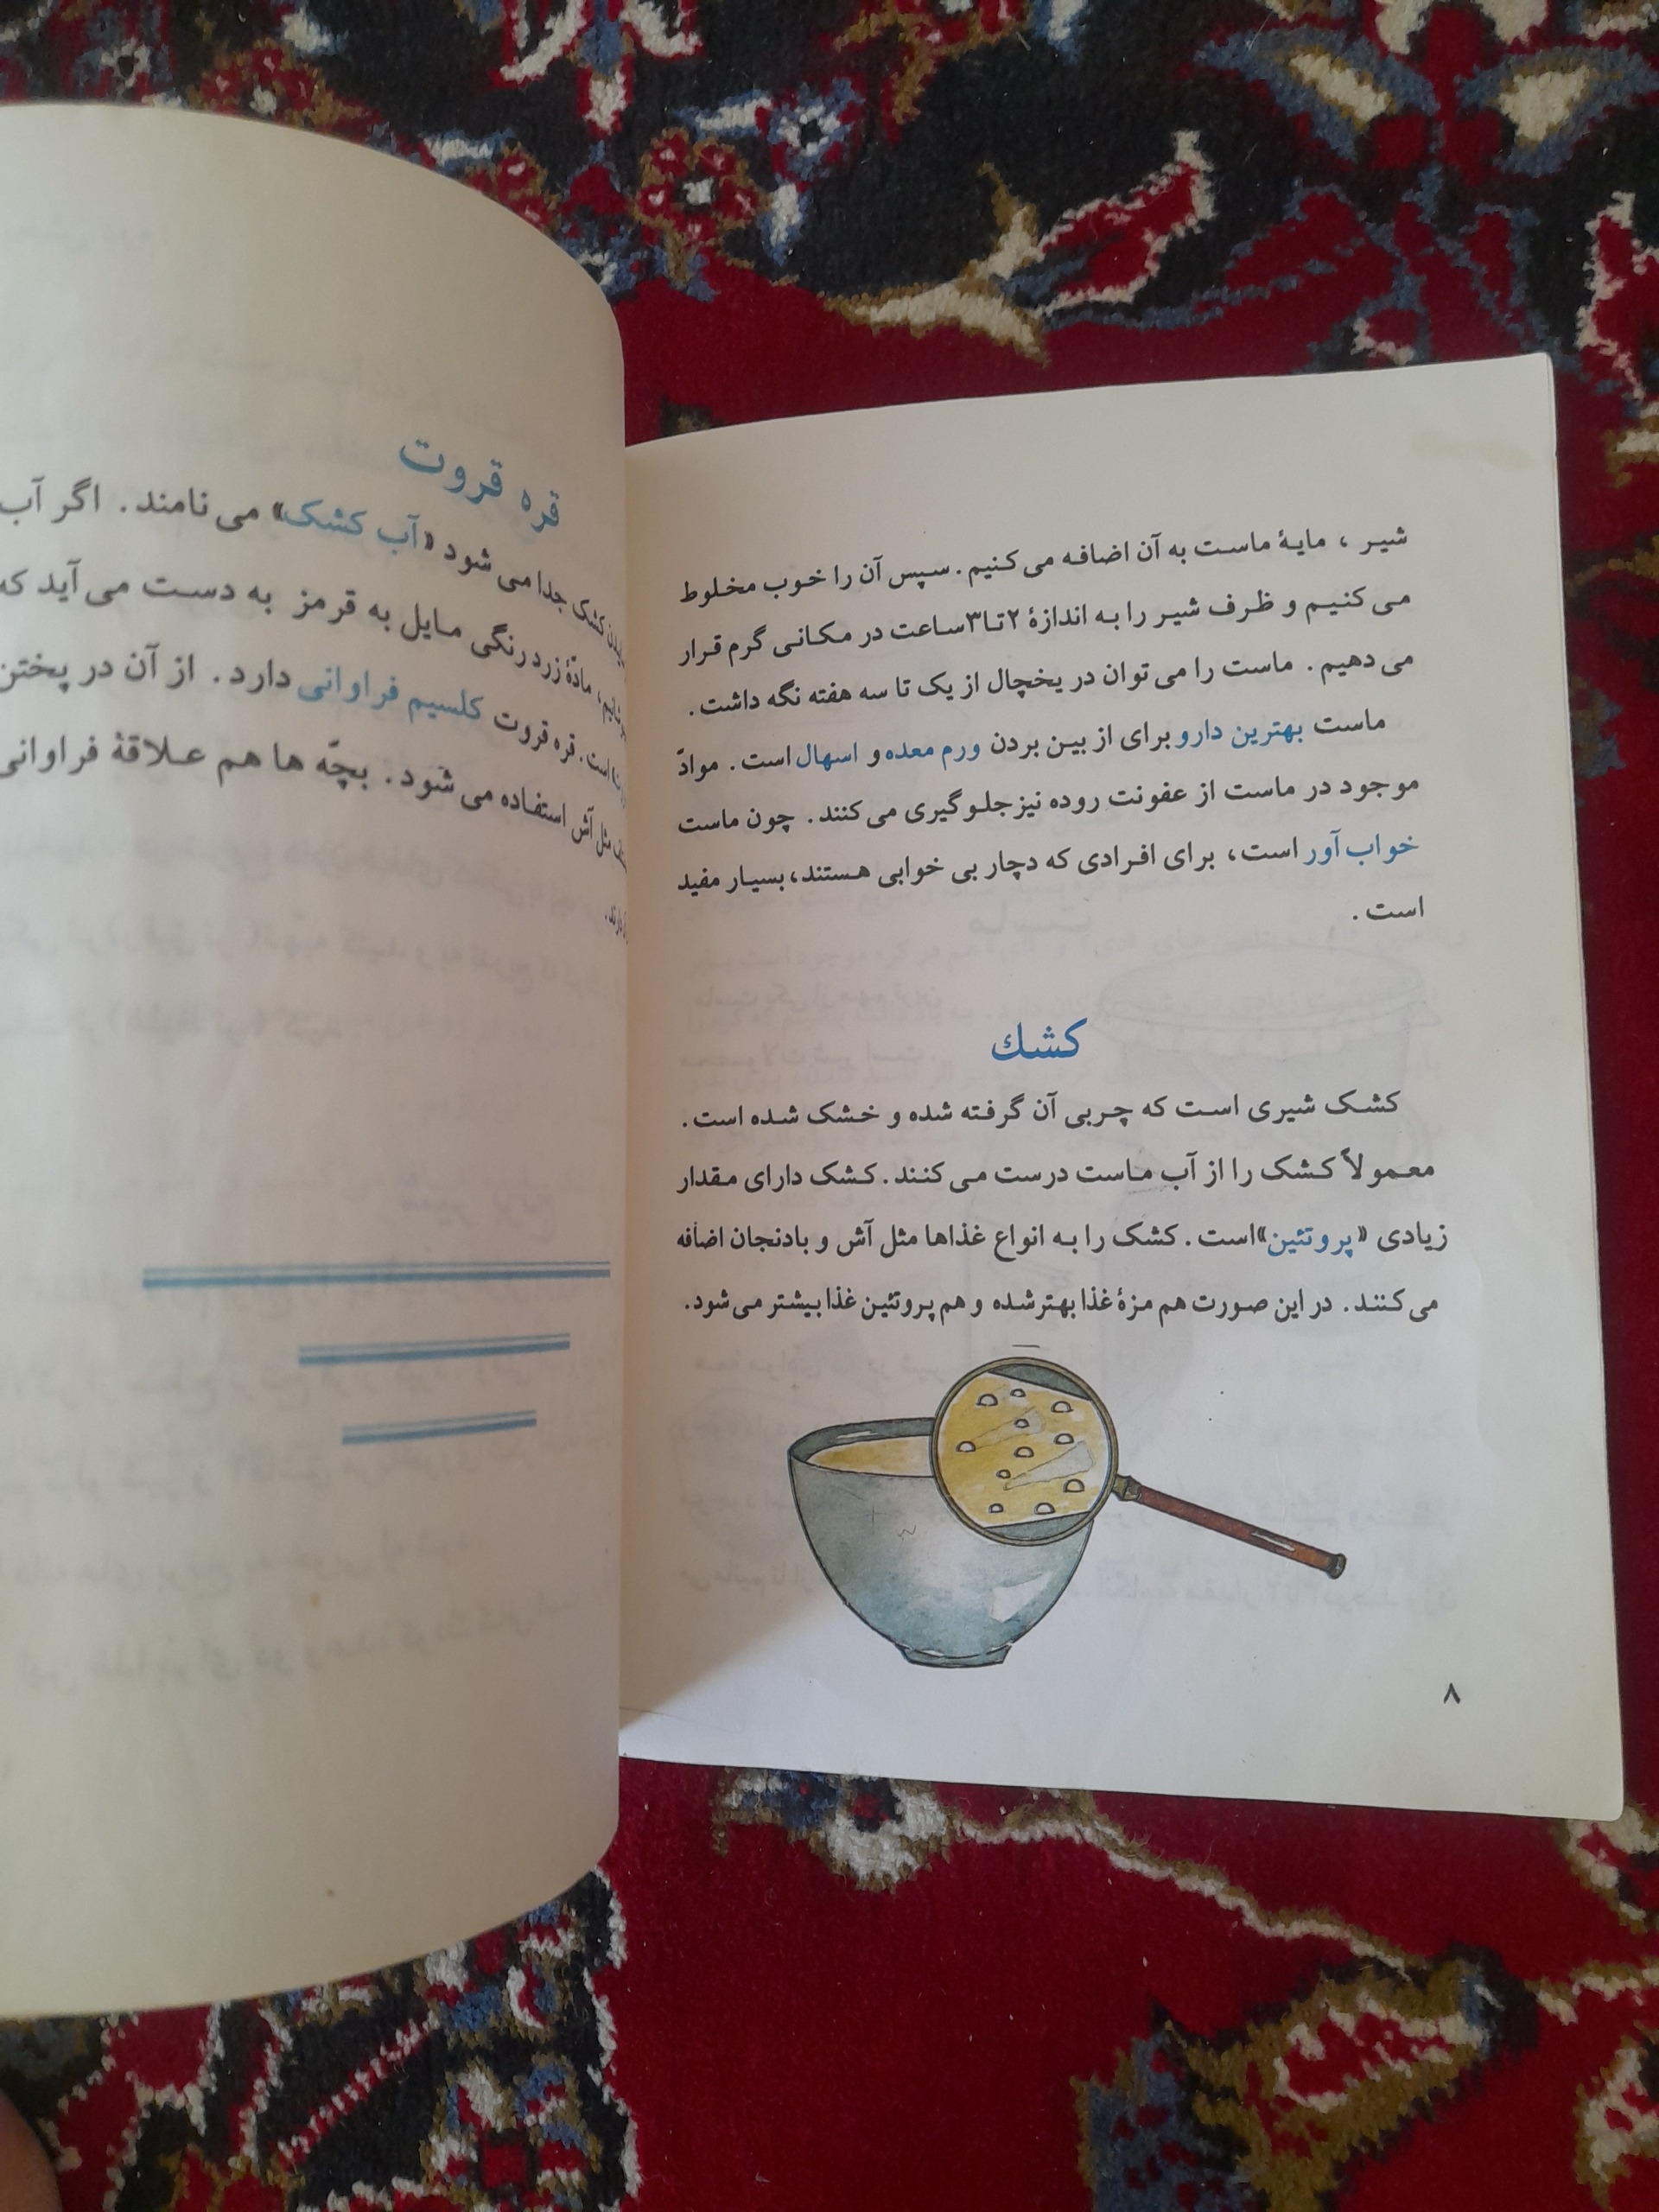 شیر ، مایهٔ ماست به آن اضافه می‌کنیم. سپس آن را خوب مخلوط
می‌کنیم و ظرف شیر را به اندازهٔ ۲ تا ۳ ساعت در مکانی گرم قرار
می‌دهیم. ماست را می‌توان در یخچال از یک تا سه هفته نگه داشت.
ماست بهترین دارو برای از بین بردن ورم معده و اسهال است. موادّ
موجود در ماست از عفونت روده نیز جلوگیری می‌کنند. چون ماست
خواب‌آور است، برای افرادی که دچار بی خوابی هستند، بسیار مفید
است.
کشك
کشک شیری است که چربی آن گرفته شده و خشک شده است.
معمولاً کشک را از آب ماست درست می‌کنند. کشک دارای مقدار
زیادی «پروتئین» است. کشک را به انواع غذاها مثل آش و بادنجان اضافه
می‌کنند. در این صورت هم مزهٔ غذا بهتر شده و هم پروتئین غذا بیشتر می‌شود.
۸
قره قروت
کشک جدا می‌شود «آب کشک» می‌نامند. اگر آب
مادّهٔ زرد رنگی مایل به قرمز به دست می‌آید که
است. قره قروت کلسیم فراوانی دارد. از آن در پختن
مثل آش استفاده می‌شود. بچّه ها هم علاقهٔ فراوانی